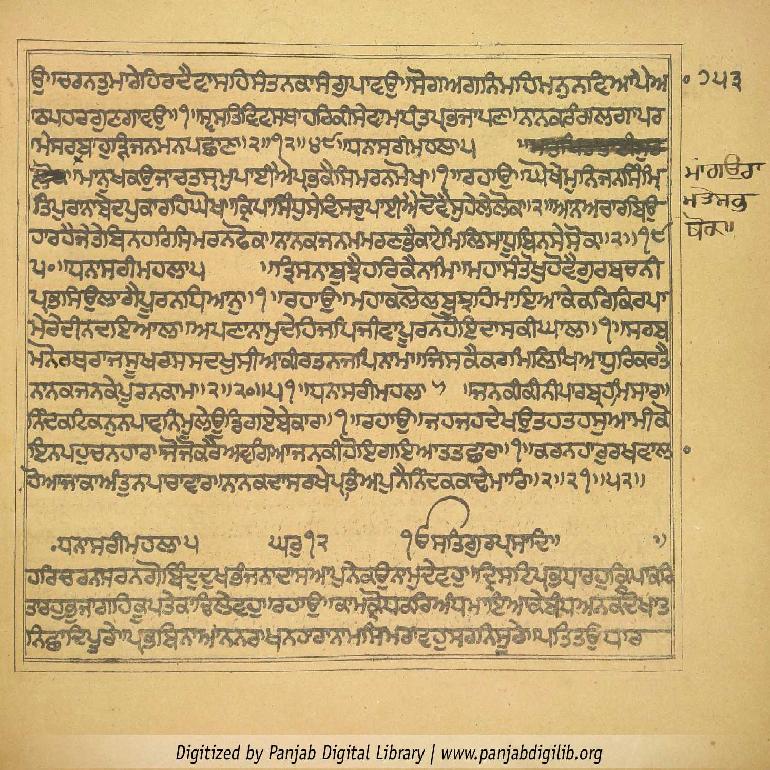 ਉ॥ਚਰਨਤੁਮਾਰੇਹਿਰਦੈਵਾਸਹਿਸੰਤਨਕਾਸੰਗੁਪਾਵਉ॥ਸੋਗਅਗਨਿਮਹਿਮਨੁਨਵਿਆਪੈਅ
ਠਪਹਰਗੁਣਗਾਵਉ॥੧॥ਸ੍ਵਸਤਿਬਿਵਸਥਾਹਰਿਕੀਸੇਵਾਮਧੵੰਤਪ੍ਰਭਜਾਪਣ॥ਨਾਨਕਰੰਗੁਲਗਾਪਰ
ਮੇਸਰਬਾਹੁੜਿਜਨਮਨਪਛਾਣ॥੨॥੧੮॥੪੯॥ਧਨਾਸਰੀਮਹਲਾ੫
ਮਾਨੁਖਕਉਜਾਚਤੁਸ੍ਰਮੁਪਾਈਐਪ੍ਰਭਕੈਸਿਮਰਨਮੋਖ॥੧॥ਰਹਾਉ॥ਘੋਖੇਮੁਨਿਜਨਸਿੰਮ੍ਰਿ
ਤਿਪੁਰਾਨਾਬੇਦਪੁਕਾਰਹਿਘੋਖ॥ਕ੍ਰਿਪਾਸਿੰਧੁਸੇਵਿਸਚੁਪਾਈਐਦੋਵੈਸੁਹੇਲੇਲੋਕ॥੨॥ਅਨਅਚਾਰਬਿਉ
ਹਾਰਹੈਜੇਤੇਬਿਨਹਰਿਸਿਮਰਨਫੋਕ॥ਨਾਨਕਜਨਮਮਰਣਭੈਕਾਟੇਮਿਲਿਸਾਧੂਬਿਨਸੇਸੋਕ॥੨॥੧੯
੫੦॥ਧਨਾਸਰੀਮਹਲਾ੫ ॥ਤ੍ਰਿਸਨਾਬੁਝੈਹਰਿਕੈਨਾਮਿ॥ਮਹਾਸੰਤੋਖੁਹੋਵੈਗੁਰਬਚਨੀ
ਪ੍ਰਭਸਿਉਲਾਗੈਪੂਰਨਧਿਆਨੁ॥੧॥ਰਹਾਉ॥ਮਹਾਕਲੋਲਬੁਝਹਿਮਾਇਆਕੇਕਰਿਕਿਰਪਾ
ਮੇਰੇਦੀਨਦਇਆਲ॥ਅਪਣਾਨਾਮੁਦੇਹਿਜਪਿਜੀਵਾਪੂਰਨਹੋਇਦਾਸਕੀਘਾਲ॥੧॥ਸਰਬ
ਮਨੋਰਥਰਾਜਸੂਖਰਸਸਦਖੁਸੀਆਕੀਰਤਨਜਪਿਨਾਮ॥ਜਿਸਕੈਕਰਮਿਲਿਖਿਆਧੁਰਿਕਰਤੈ
ਨਾਨਕਜਨਕੇਪੂਰਨਕਾਮ॥੨॥੨੦॥੫੧॥ਧਨਾਸਰੀਮਹਲਾ ੫ ॥ਜਨਕੀਕੀਨੀਪਾਰਬ੍ਰਹਮਿਸਾਰ॥
ਨਿੰਦਕਟਿਕਨੁਨਪਾਵਨਿਮੂਲੇਊਡਿਗਏਬੇਕਾਰ॥੧॥ਰਹਾਉ॥ਜਹਜਹਦੇਖਉਤਹਤਹਸੁਆਮੀਕੋ
ਇਨਪਹੁਚਨਹਾਰ॥ਜੋਜੋਕਰੈਅਵਗਿਆਜਨਕੀਹੋਇਗਇਆਤਤਛਾਰ॥੧॥ਕਰਨਹਾਰੁਰਖਵਾਲਾ
ਹੋਆਜਾਕਾਅੰਤੁਨਪਾਰਾਵਾਰ॥ਨਾਨਕਦਾਸਰਖੇਪ੍ਰਭਿਅਪੁਨੈਨਿੰਦਕਕਾਢੇਮਾਰਿ॥੨॥੨੧॥੫੨॥
ਧਨਾਸਰੀਮਹਲਾ੫ ਘਰੁ੧੨ ੴਸਤਿਗੁਰਪ੍ਰਸਾਦਿ॥ ॥
ਹਰਿਚਰਨਸਰਨਗੋਬਿੰਦਦੁਖਭੰਜਨਾਦਾਸਆਪੁਨੇਕਉਨਾਮੁਦੇਵਹੁ॥ਦ੍ਰਿਸਟਿਪ੍ਰਭਧਾਰਹੁਕ੍ਰਿਪਾਕਰਿ
ਤਾਰਹੁਭੁਜਾਗਹਿਕੂਪਤੇਕਾਢਿਲੇਵਹੁ॥ਰਹਾਉ॥ਕਾਮਕ੍ਰੋਧਕਰਿਅੰਧਮਾਇਆਕੇਬੰਧਅਨਕਦੋਖਾਤ
ਨਿਛਾਦਿਪੂਰੇ॥ਪ੍ਰਭਬਿਨਾਆਨਨਰਾਖਨਹਾਰਾਨਾਮੁਸਿਮਰਾਵਹੁਸਰਨਿਸੂਰੇ॥ਪਤਿਤਉਧਾਰ
੭੫੩
ਮਾਗਉਰਾ
Digitized by Panjab Digital Library | www.panjabdigilib.org